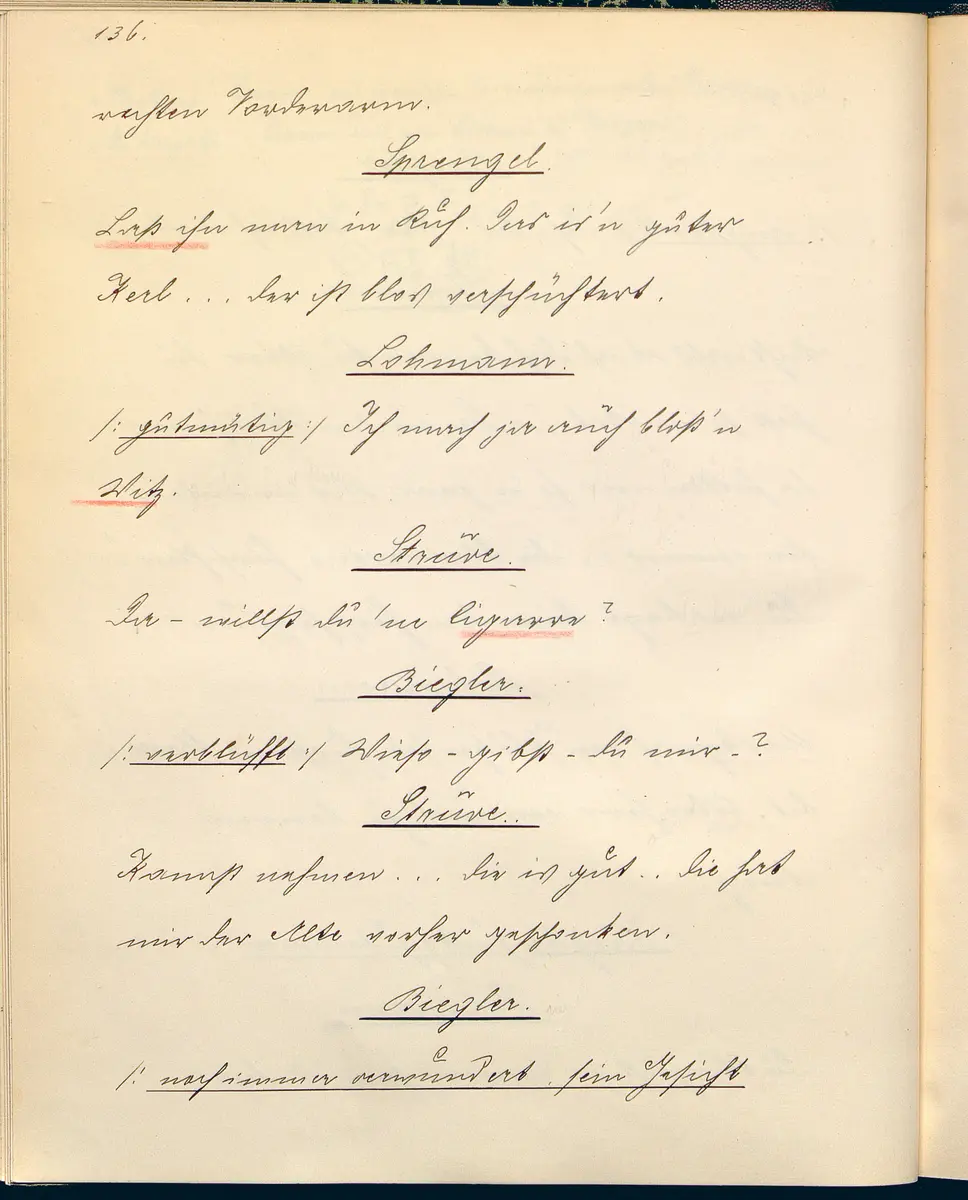 136.
rechten Vorderarm.
Sprengel.
Laß ihn man in Ruh. Das is'n guter
Kerl... der ist blos verschüchtert.
Lohmann.
/: gutmütig :/ Ich mach ja auch bloß'n
Witz.
Struve.
Da - willst du 'ne Cigarre?
Biegler.
/: verblüfft :/ Wieso - gibst - du mir -?
Struve..
Kannst nehmen... die is gut.. die hat
mir der Alte vorher geschenken.
Biegler.
/: noch immer verwundert, sein Gesicht